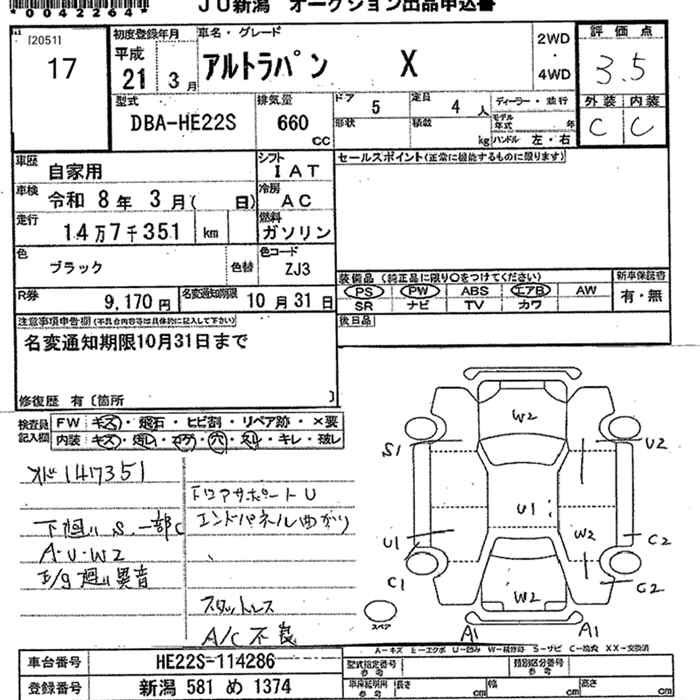 *00422264*
JU新潟 オークション出品申込書
[2051]
17
初度登録年月
平成
21年 3月
車名・グレード
アルトラパン X
2WD
・
4WD
評価点
3.5
外装 内装
C C
型式
DBA-HE22S
排気量
660
cc
ドア 5
定員 4 人
形状
積載 kg
ディーラー・並行
モデル年式 年
ハンドル 左・右
車歴
自家用
シフト
IAT
セールスポイント(正常に機能するものに限ります)
車検
令和 8年 3月( 日)
冷房
AC
走行
14万7千351 km
燃料
ガソリン
色
ブラック
色替
色コード
ZJ3
装備品 (純正品に限り○をつけてください)
新車保証書
PS PW ABS エアB AW
有・無
SR ナビ TV カワ
R券
9,170円
名変通知期限
10月31日
後日品
注意事項申告欄(不具合内容等は具体的に記入して下さい)
名変通知期限10月31日まで
修復歴 有〔箇所 〕
検査員記入欄
FW キズ・飛石・ヒビ割・リペア跡・×要
内装 キズ・汚れ・コゲ・穴・スレ・キレ・破レ
メーター147351
ドロアサポートU
下廻りS.一部C
エンドパネル曲がり
A・U・W2
E/g廻り異音
スタットレス
A/C不良
W2
S1
U2
U1
W2
U1
C2
C1
C2
W2
スペア
A1
A1
A-キズ E-エクボ U-凹み W-補修跡 S-サビ C-腐食 XX-交換済
車台番号
HE22S-114286
型式指定番号
参考
類別区分番号
参考
登録番号
新潟 581 め 1374
車庫証明用
参考
長さ cm
幅 cm
高さ cm